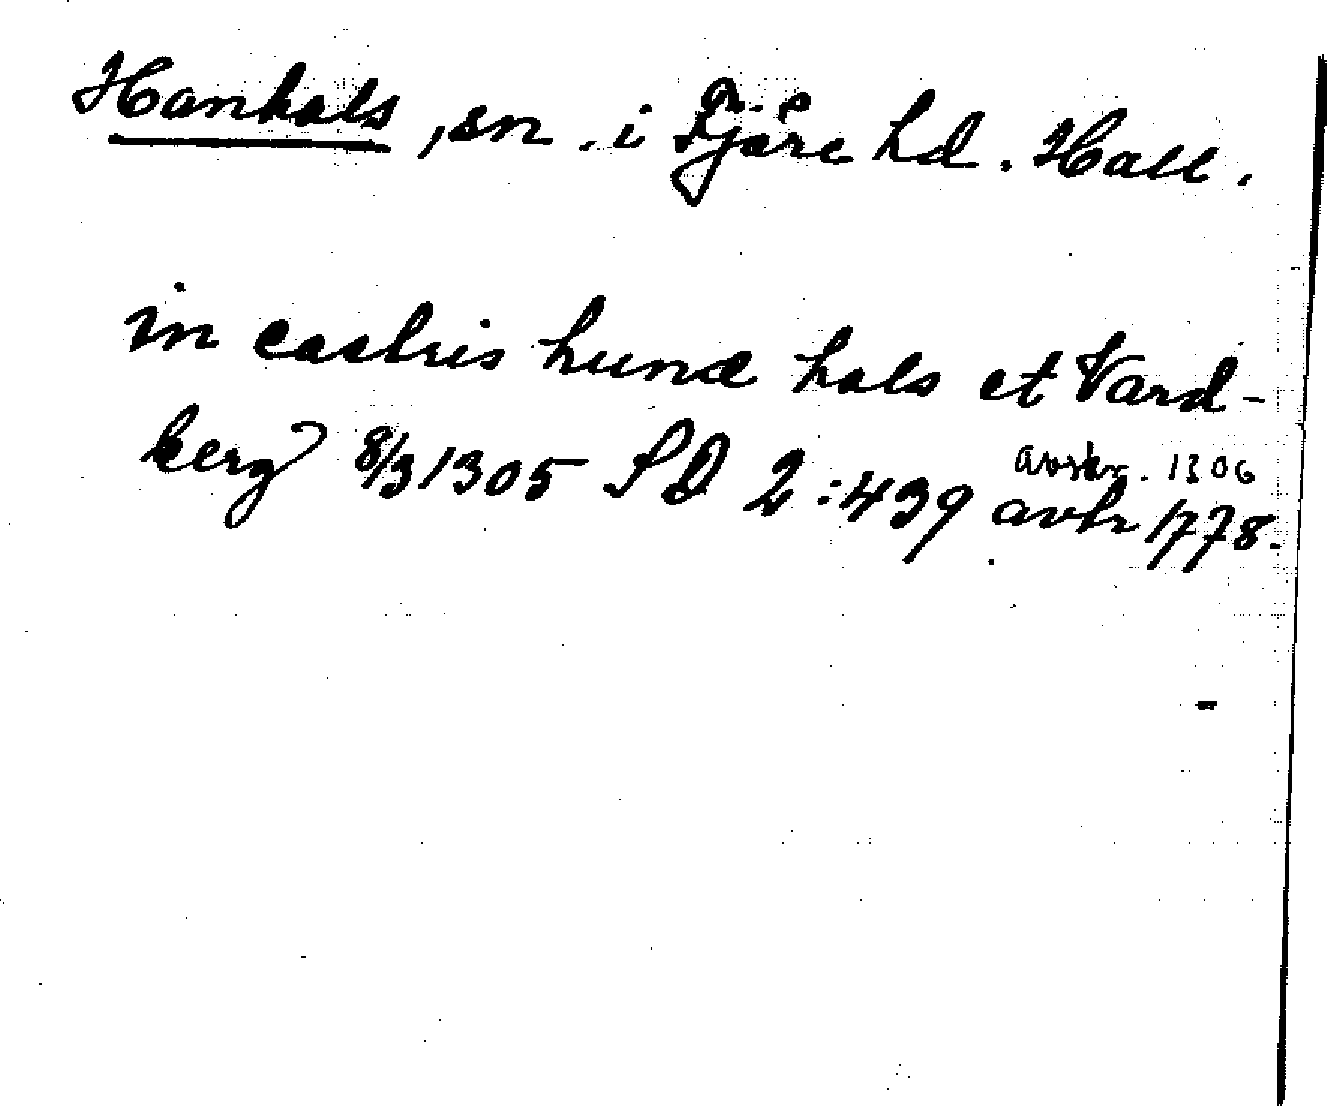 Hanhals, sn. i Fjäre hd. Hall.
in castris hunæ hals et Vard-
berg 8/3 1305 SD 2:439 avskr. 1306
avtr 1778.